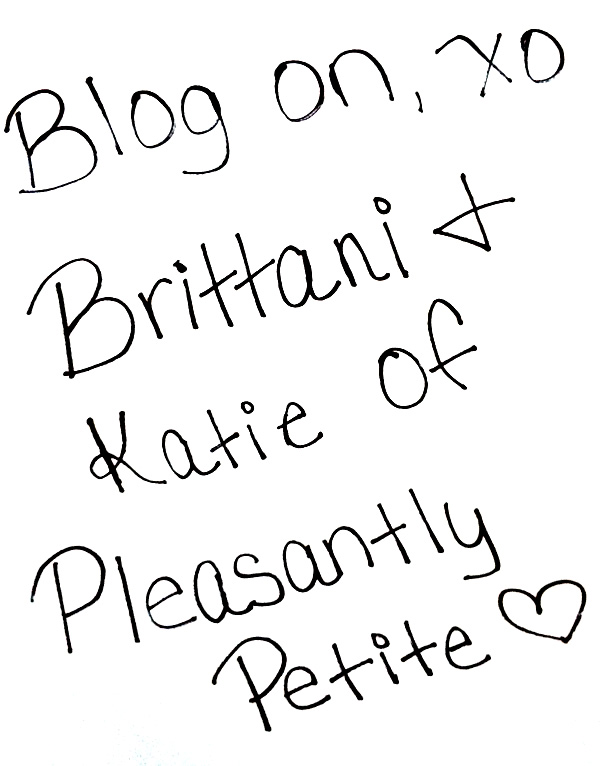 Blog on, xo
Brittani &
Katie of
Pleasantly
Petite ♡